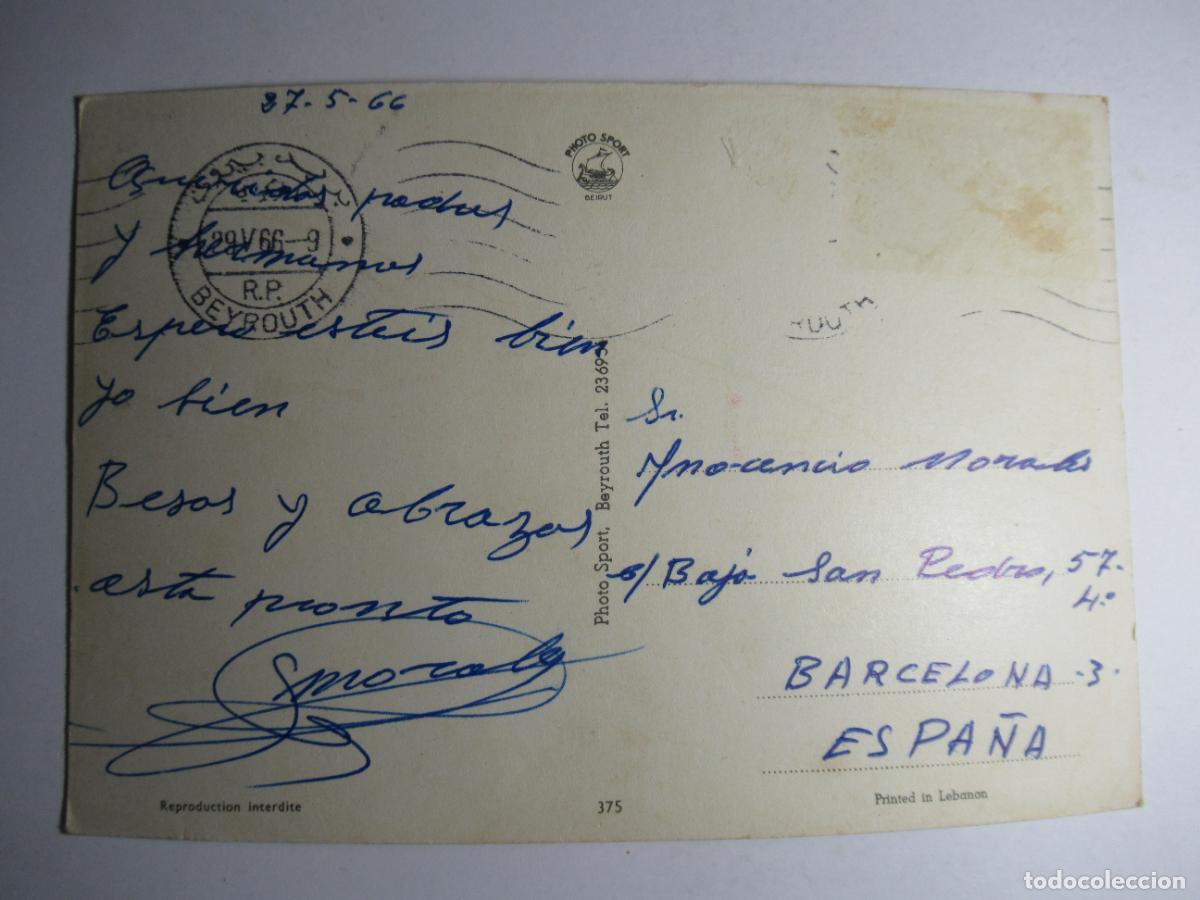 27-5-66
Queridos padres
y hermanos
Espero esteis bien
yo bien
Besos y abrazos
asta pronto
Smorales
PHOTO SPORT
BEIRUT
29 V 66-9
R.P.
BEYROUTH
YOUTH
Photo Sport, Beyrouth Tel. 236954
Sr.
Ynocencio Morales
c/Bajo San Pedro, 57-
4º
BARCELONA-3-
ESPAÑA
Reproduction interdite
375
Printed in Lebanon
todocoleccion